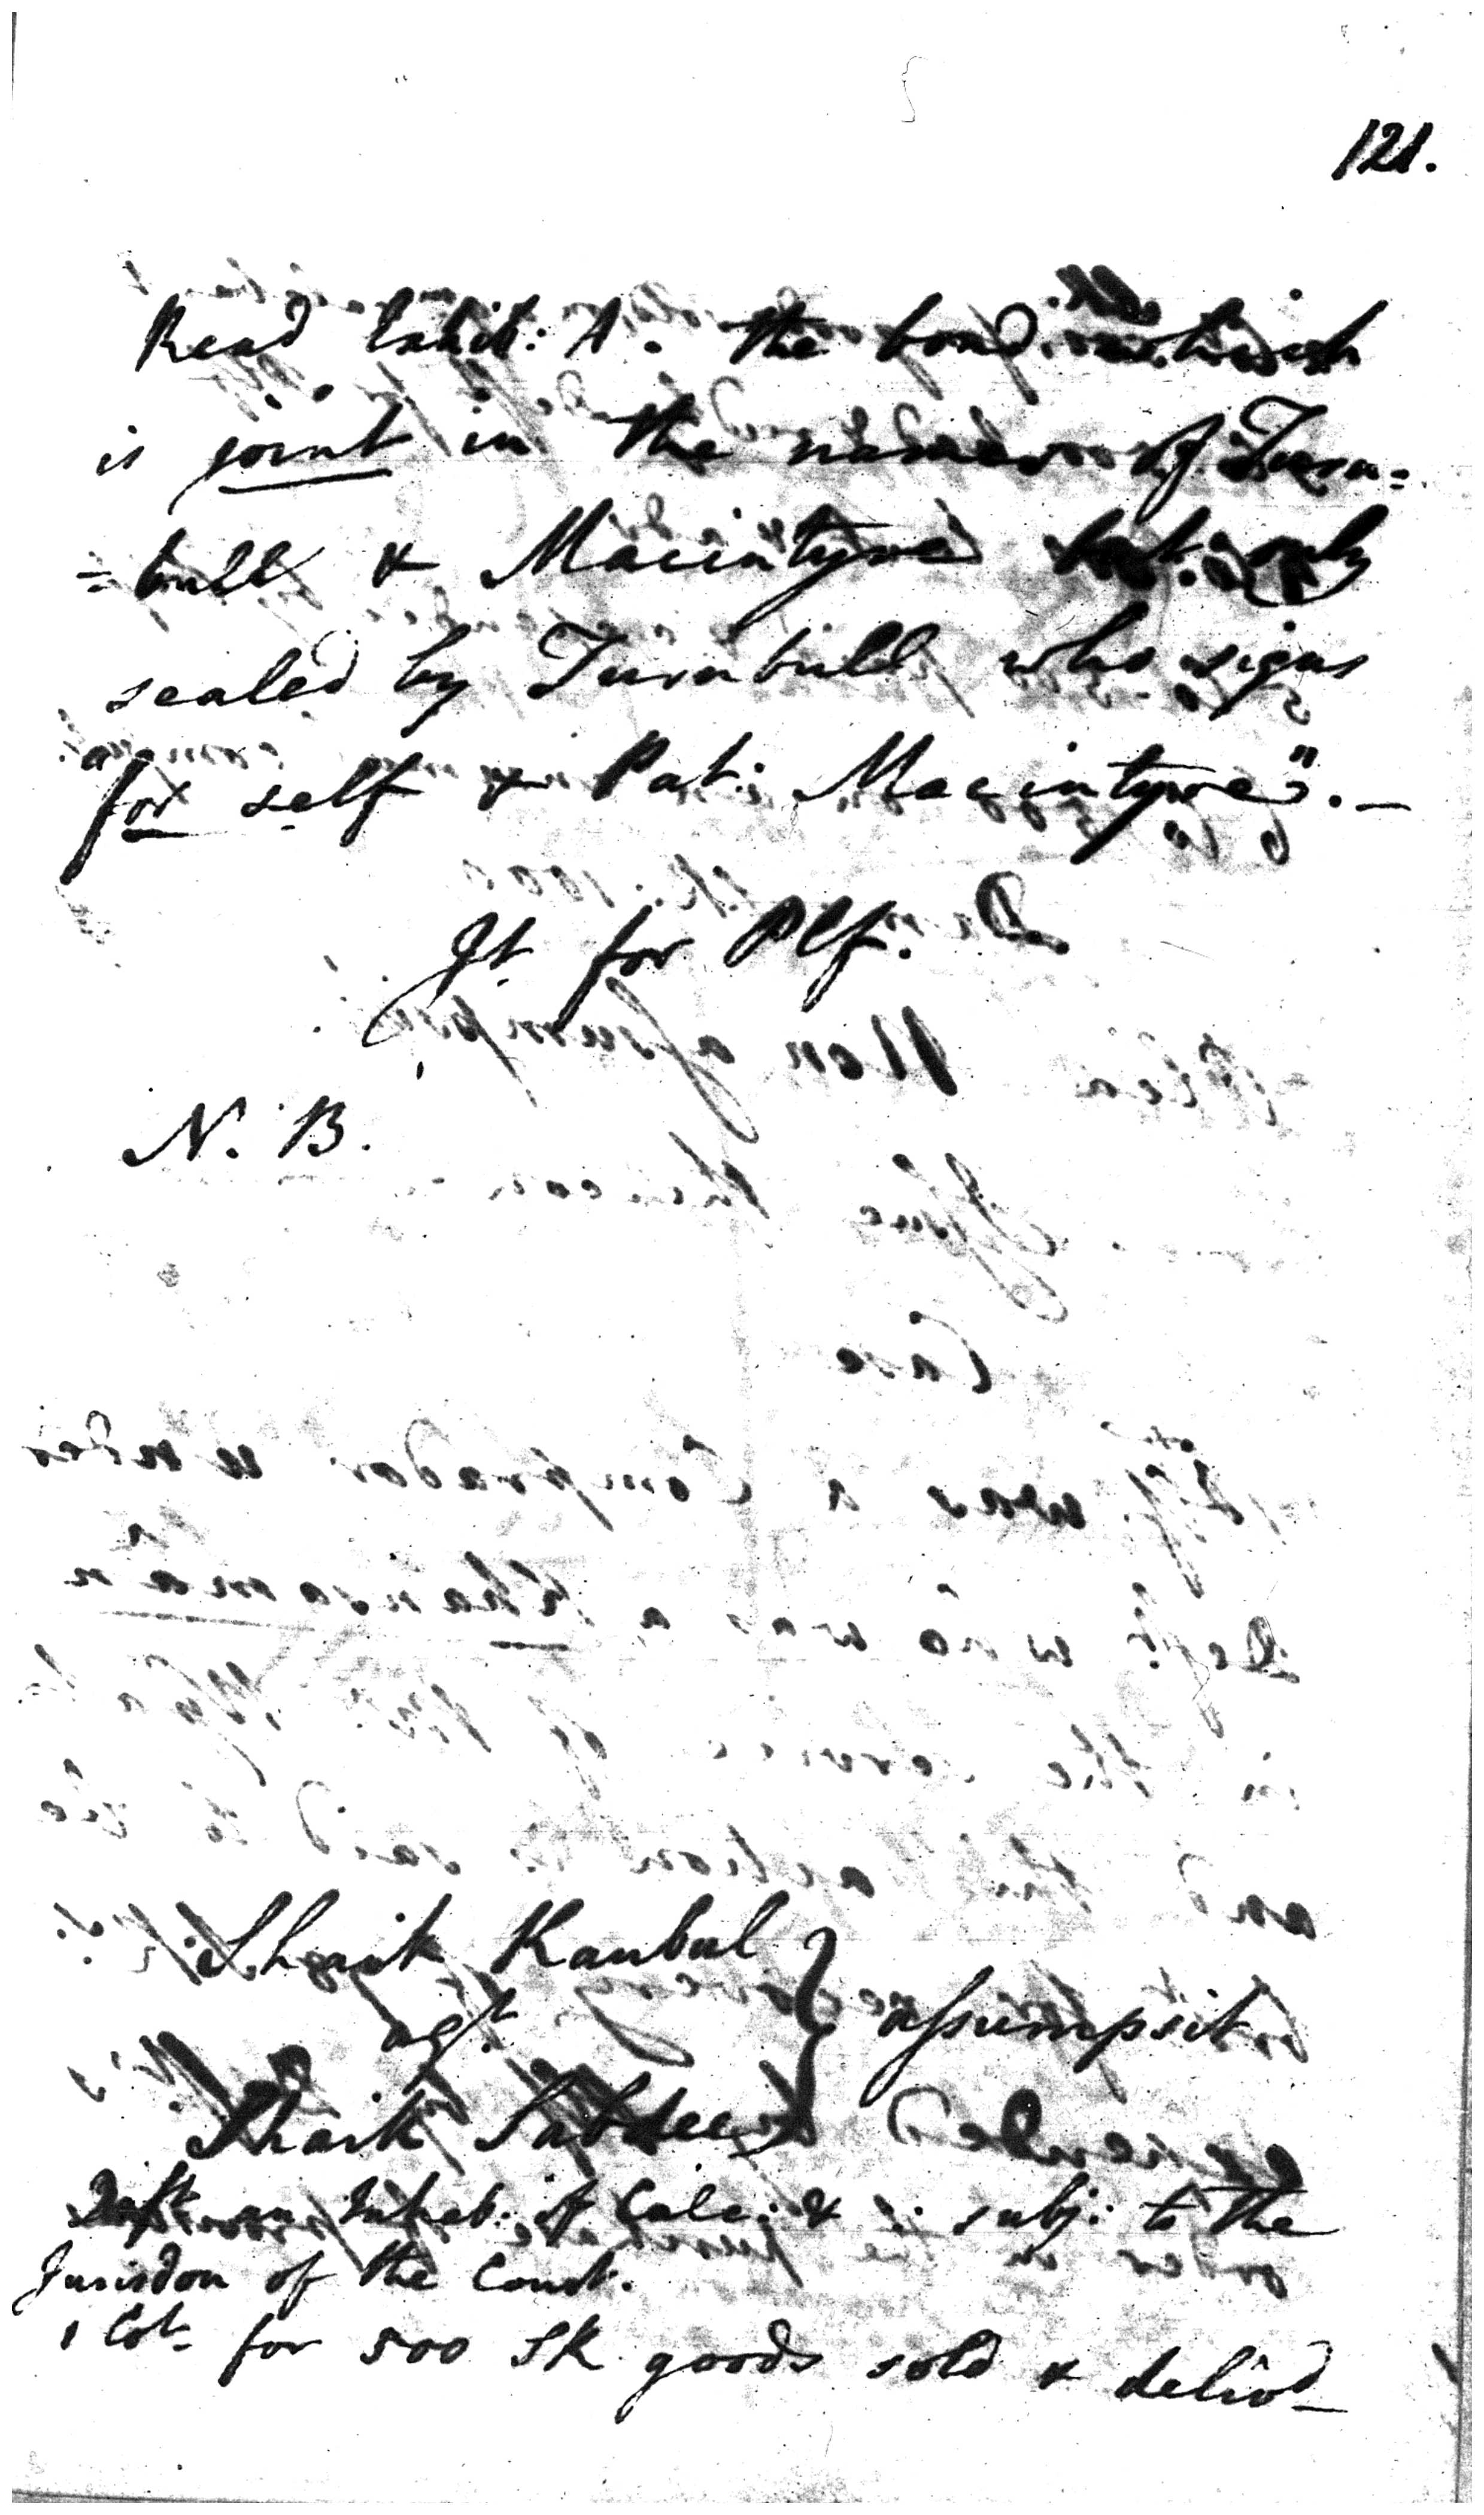 121.
Read Exhib: A. the bond which
is joint in the names of Turn=
=bull & Macintyre but only
sealed by Turnbull who signs
"for self & Pat: Macintyre". —
Jt. for Plf.
N. B.
Shaik Kaubul
agt. } assumpsit
Shaik
Deft an Inhab: of Calc: & subj: to the
Jurisdon of the Court.
1 Cot. for 500 SK goods sold & delivd—